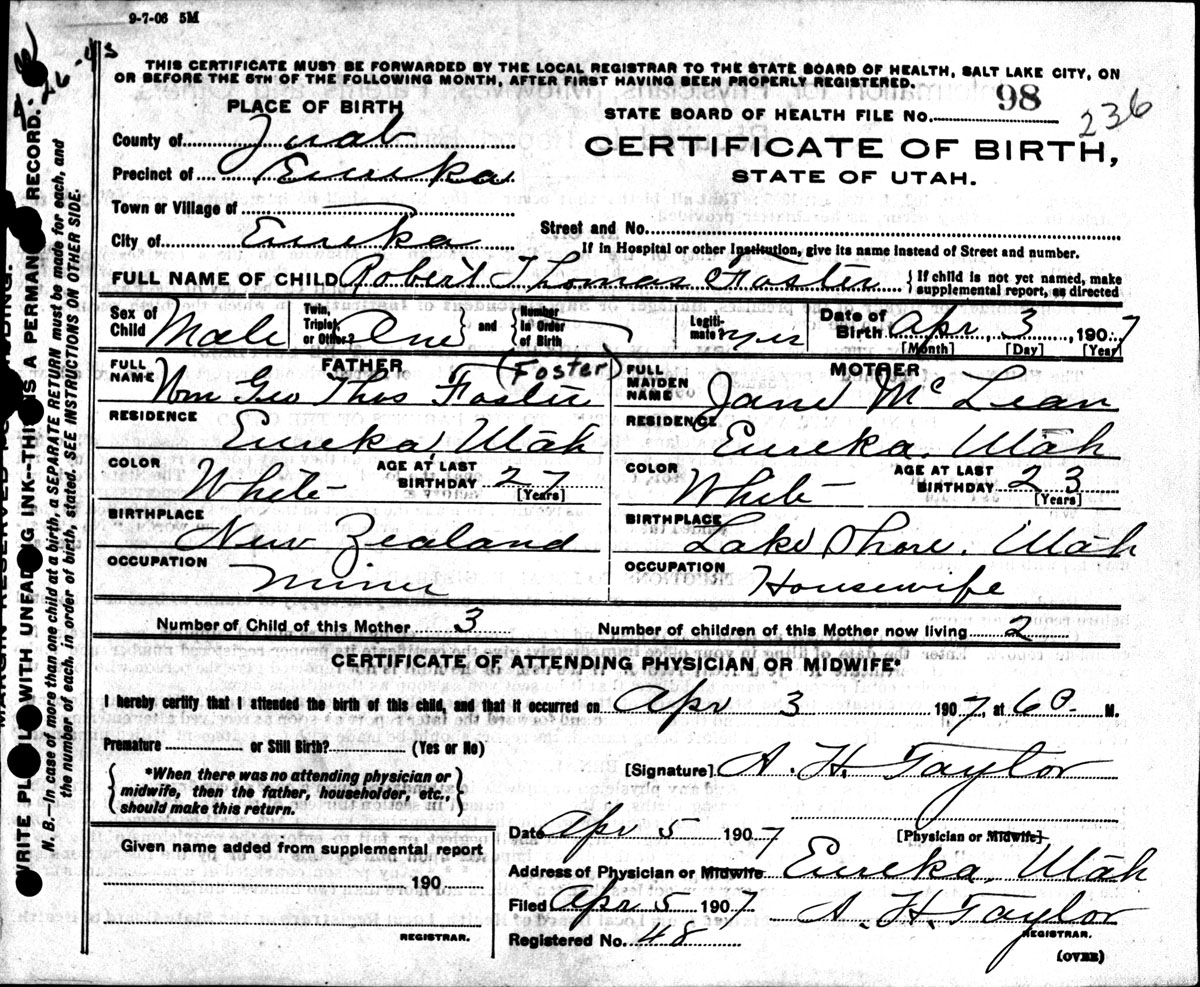 9-7-06 5M
THIS CERTIFICATE MUST BE FORWARDED BY THE LOCAL REGISTRAR TO THE STATE BOARD OF HEALTH, SALT LAKE CITY, ON
OR BEFORE THE 5TH OF THE FOLLOWING MONTH, AFTER FIRST HAVING BEEN PROPERLY REGISTERED.
PLACE OF BIRTH
STATE BOARD OF HEALTH FILE NO. 98 236
County of Juab
CERTIFICATE OF BIRTH,
Precinct of Eureka
STATE OF UTAH.
Town or Village of
Street and No.
City of Eureka
If in Hospital or other Institution, give its name instead of Street and number.
FULL NAME OF CHILD Robert Thomas Foster { If child is not yet named, make supplemental report, as directed
Sex of Child Male Twin, Triplet, or Other? One } and { Number In Order of Birth Legitimate? yes Date of Birth Apr. 3, 1907
[Month] [Day] [Year]
FATHER (Foster)
FULL NAME Wm Geo Thos Foster
RESIDENCE Eureka, Utah
COLOR White AGE AT LAST BIRTHDAY 27 [Years]
BIRTHPLACE New Zealand
OCCUPATION Miner
MOTHER
FULL MAIDEN NAME Jane McLean
RESIDENCE Eureka, Utah
COLOR White AGE AT LAST BIRTHDAY 23 [Years]
BIRTHPLACE Lake Shore, Utah
OCCUPATION Housewife
Number of Child of this Mother 3 Number of children of this Mother now living 2
CERTIFICATE OF ATTENDING PHYSICIAN OR MIDWIFE*
I hereby certify that I attended the birth of this child, and that it occurred on Apr 3 1907, at 6 M.
Premature or Still Birth? (Yes or No)
{ *When there was no attending physician or midwife, then the father, householder, etc., should make this return. }
[Signature] A. H. Taylor
[Physician or Midwife]
Date Apr 5 1907
Address of Physician or Midwife Eureka, Utah
Filed Apr 5 1907 A. H. Taylor
REGISTRAR.
Registered No. 48
(OVER)
Given name added from supplemental report
190
REGISTRAR.
MARGIN RESERVED FOR BINDING.
WRITE PLAINLY WITH UNFADING INK--THIS IS A PERMANENT RECORD.
N. B.—In case of more than one child at a birth, a SEPARATE RETURN must be made for each, and
the number of each, in order of birth, stated. SEE INSTRUCTIONS ON OTHER SIDE.